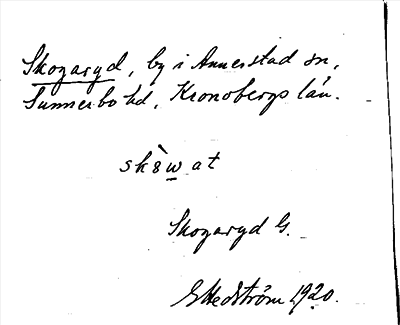 Skogaryd, by i Annerstad sn,
Sunnerbo hd, Kronobergs län.
skòwat
Skogaryd G.
G Hedström 1920.